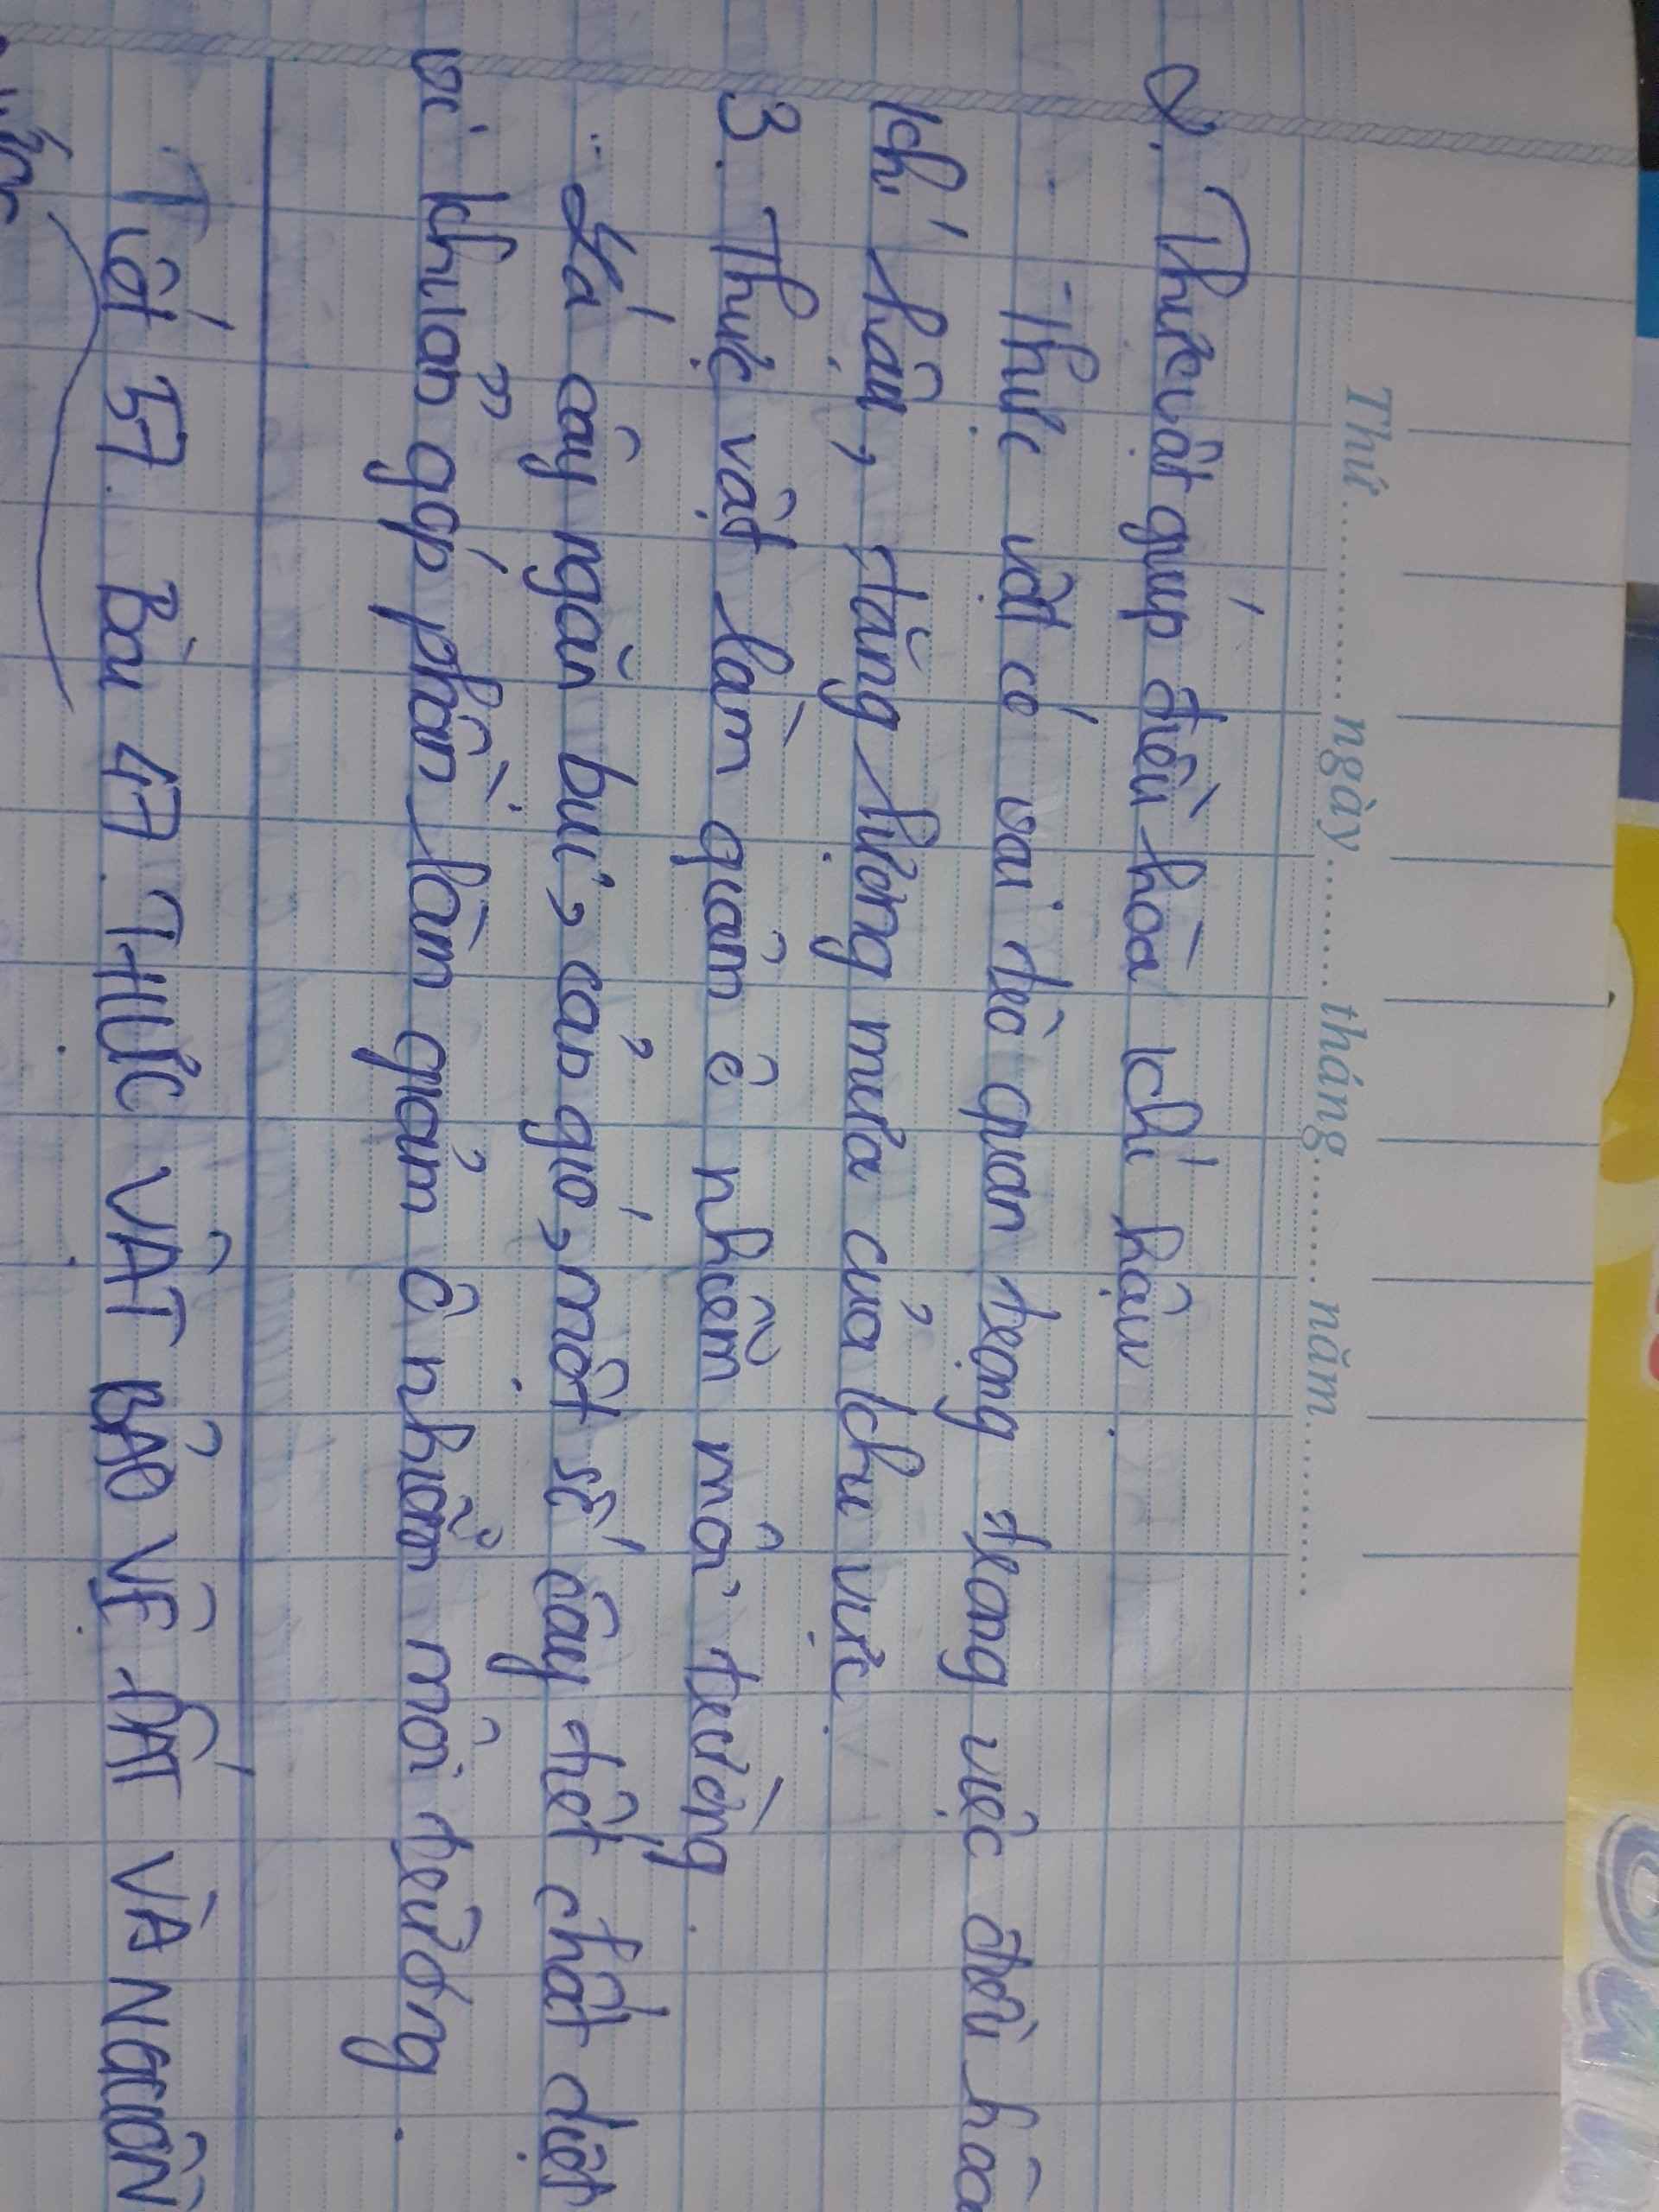 Thứ.........ngày.........tháng.........năm.........
2. Thực vật giúp điều hòa khí hậu.
- Thực vật có vai trò quan trọng trong việc điều hòa
khí hậu, tăng lượng mưa của khu vực.
3. Thực vật làm giảm ô nhiễm môi trường.
- Lá cây ngăn bụi, cản gió, một số cây tiết chất diệt
vi khuẩn góp phần làm giảm ô nhiễm môi trường.
Tiết 57. Bài 47. THỰC VẬT BẢO VỆ ĐẤT VÀ NGUỒN
nước